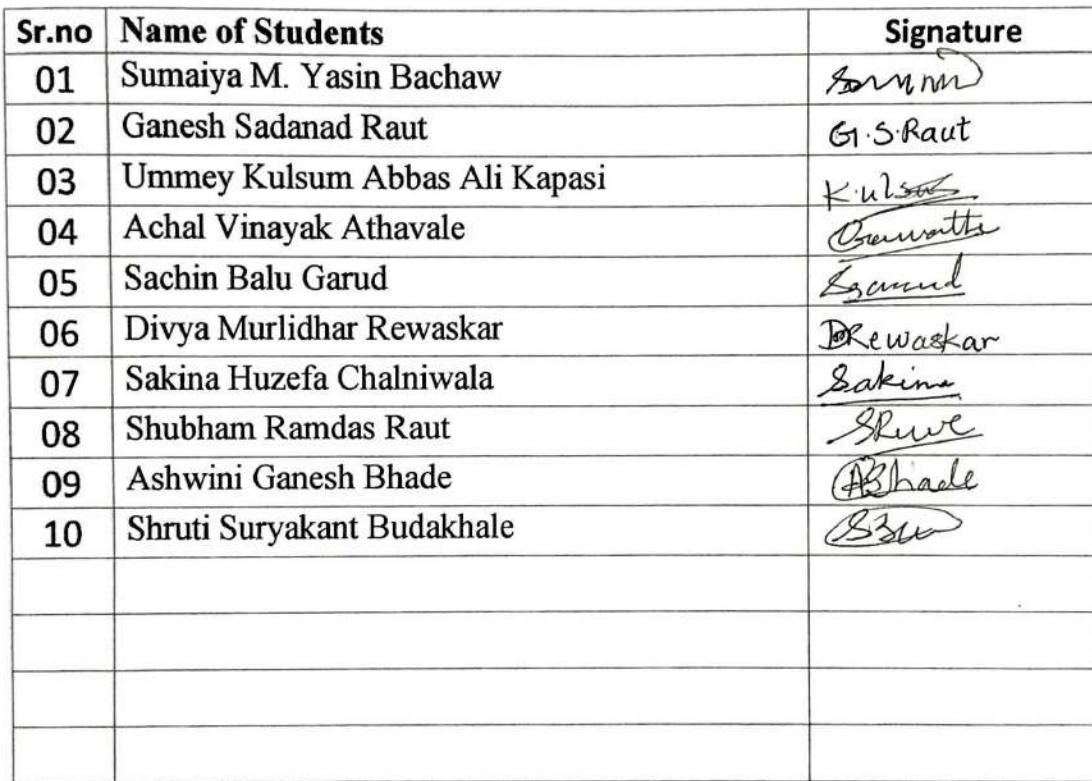 Sr.no Name of Students Signature
01 Sumaiya M. Yasin Bachaw
02 Ganesh Sadanad Raut G.S.Raut
03 Ummey Kulsum Abbas Ali Kapasi
04 Achal Vinayak Athavale
05 Sachin Balu Garud
06 Divya Murlidhar Rewaskar DRewaskar
07 Sakina Huzefa Chalniwala Sakina
08 Shubham Ramdas Raut
09 Ashwini Ganesh Bhade ABhade
10 Shruti Suryakant Budakhale